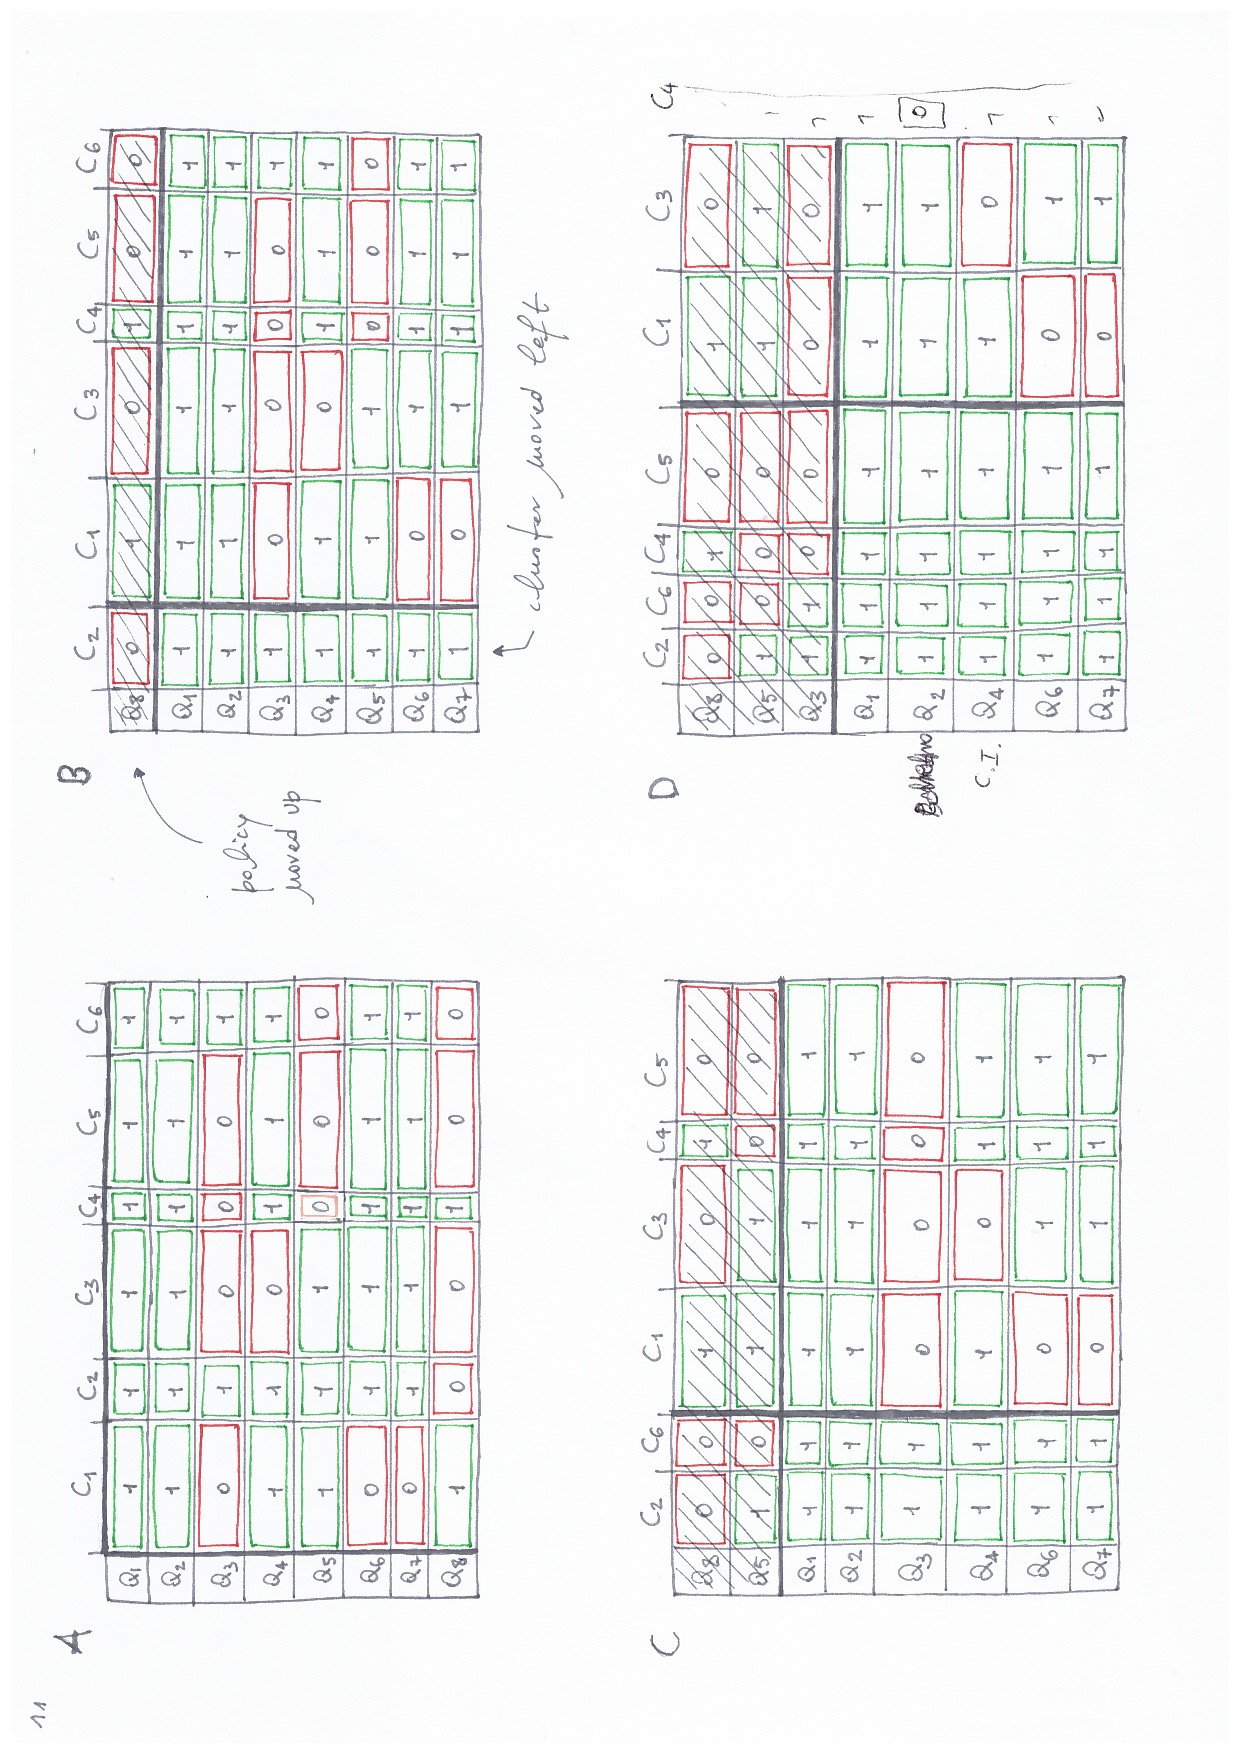 11
A
C1 C2 C3 C4 C5 C6
Q1 1 1 1 1 1 1
Q2 1 1 1 1 1 1
Q3 0 1 0 0 0 1
Q4 1 1 0 1 1 1
Q5 1 1 1 0 0 0
Q6 0 1 1 1 1 1
Q7 0 1 1 1 1 1
Q8 1 0 0 1 0 0
B
policy
moved up
C2 C1 C3 C4 C5 C6
Q8 0 1 0 1 0 0
Q1 1 1 1 1 1 1
Q2 1 1 1 1 1 1
Q3 1 0 0 0 0 1
Q4 1 1 0 1 1 1
Q5 1 1 1 0 0 0
Q6 1 0 1 1 1 1
Q7 1 0 1 1 1 1
cluster moved left
C
C2 C6 C1 C3 C4 C5
Q8 0 0 1 0 1 0
Q5 1 0 1 1 0 0
Q1 1 1 1 1 1 1
Q2 1 1 1 1 1 1
Q3 1 1 0 0 0 0
Q4 1 1 1 0 1 1
Q6 1 1 0 1 1 1
Q7 1 1 0 1 1 1
D
C2 C6 C4 C5 C1 C3 C4
Q8 0 0 1 0 1 0
Q5 1 0 0 0 1 1
Q3 1 1 0 0 0 0 1
Q1 1 1 1 1 1 1 1
Q2 1 1 1 1 1 1 0
C.I. Q4 1 1 1 1 1 0 1
Q6 1 1 1 1 0 1 1
Q7 1 1 1 1 0 1